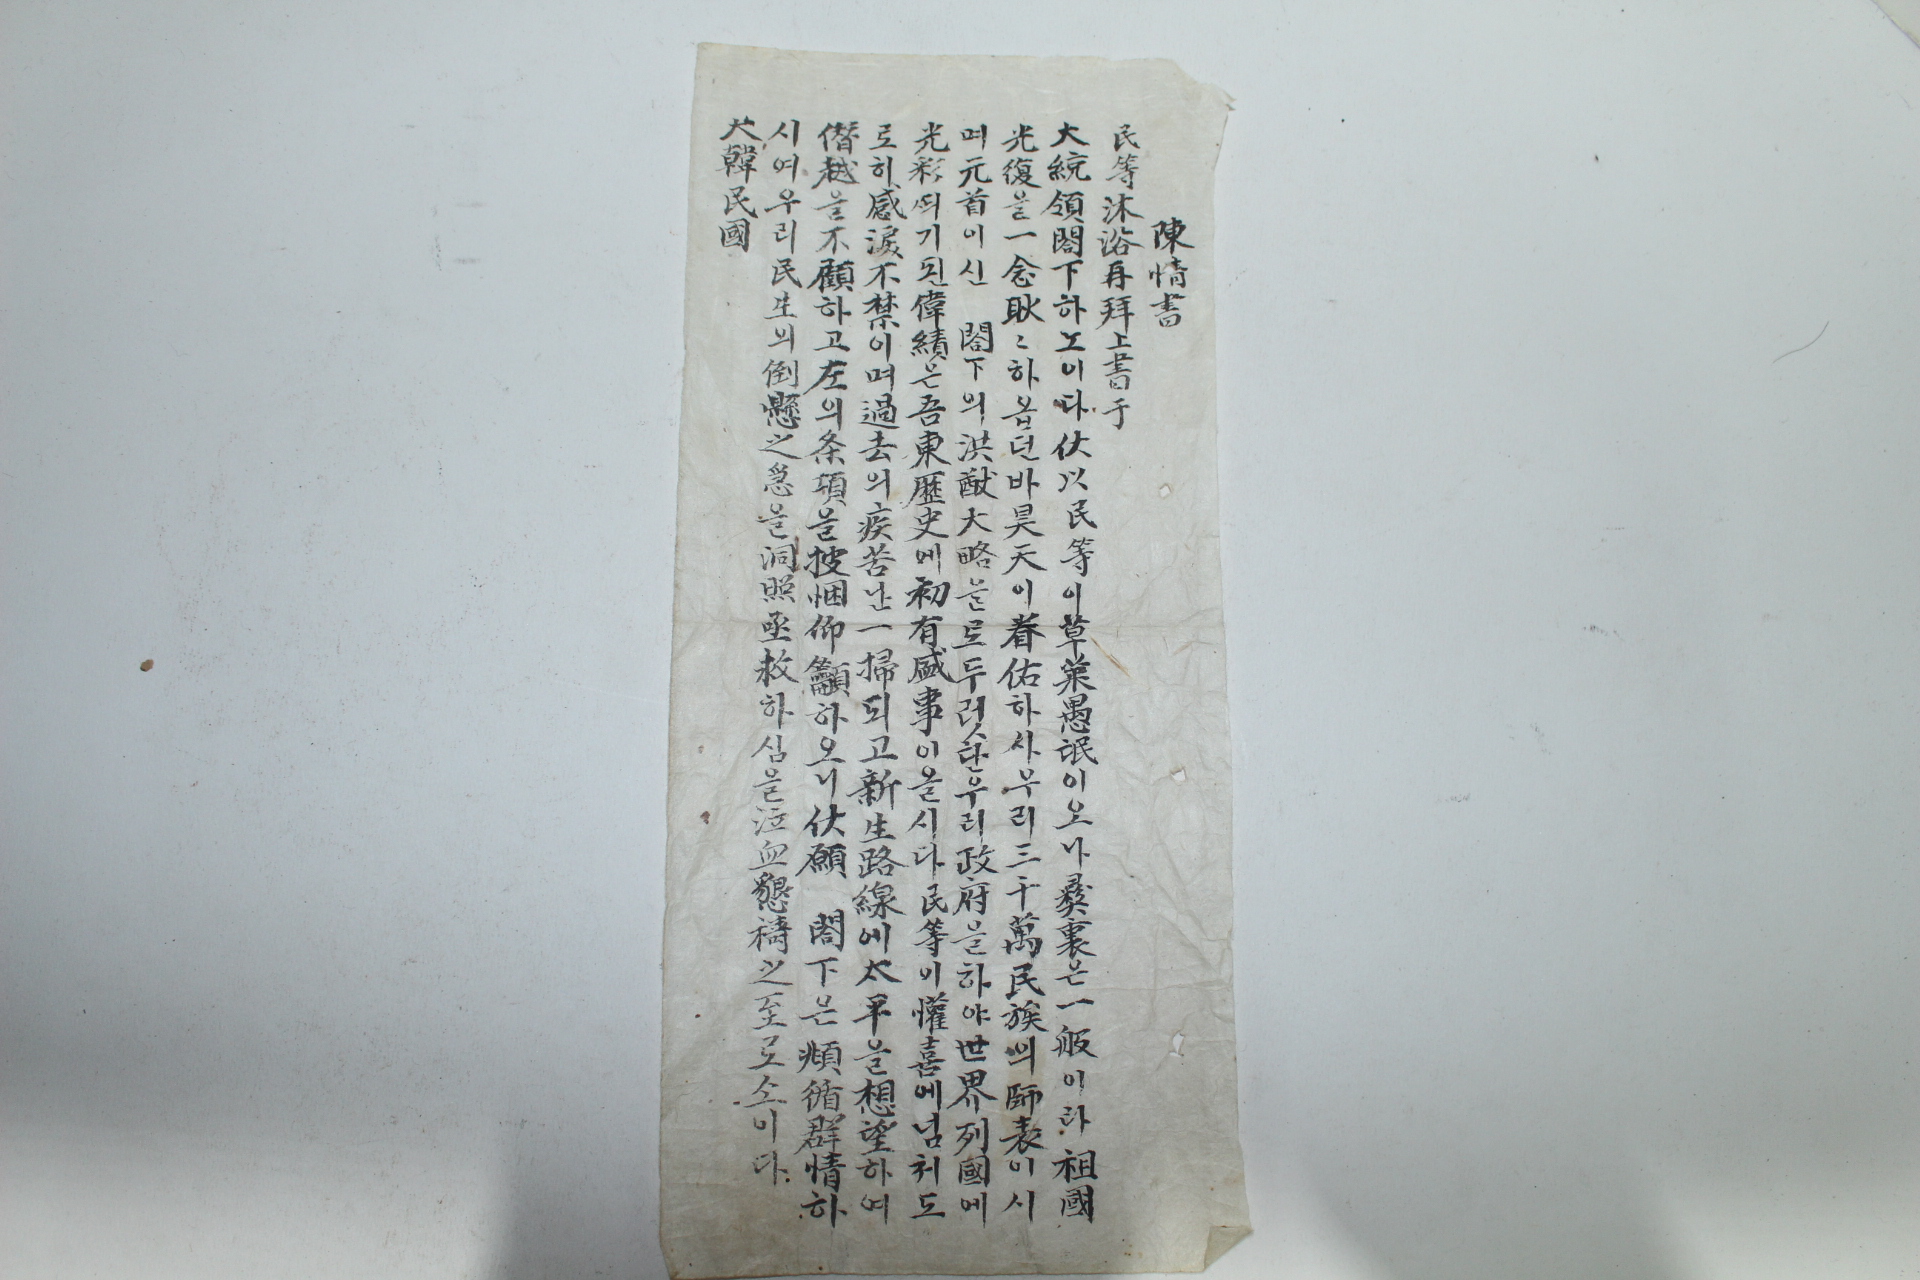 陳情書
民等沐浴再拜上書于
大統領閣下하노이다伏以民等이草菜愚氓이오나彛衷은一般이라祖國
光復을一念耿〻하옵던바昊天이眷佑하사우리三千萬民族의師表이시
며元首이신 閣下의洪猷大略을로두렷한우리政府을하야世界列國에
光彩띄기된偉績은吾東歷史에初有盛事이올시다民等이懽喜에넘처도
로히感淚不禁이며過去의疾苦난一掃되고新生路線에太平을想望하여
僭越을不顧하고左의条項을披悃仰籲하오니伏願 閣下은頫循群情하
시여우리民生의倒懸之急을洞照亟救하심을泣血懇禱之至로소이다
大韓民國